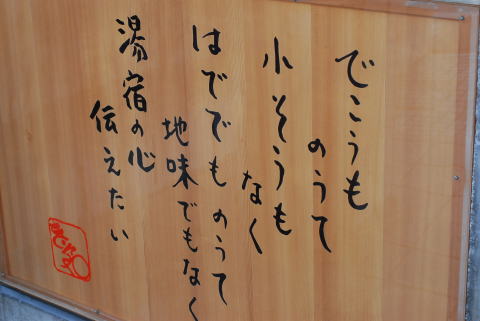 でこうも
のうて
小そうも
なく
はででものうて
地味でもなく
湯宿の心
伝えたい